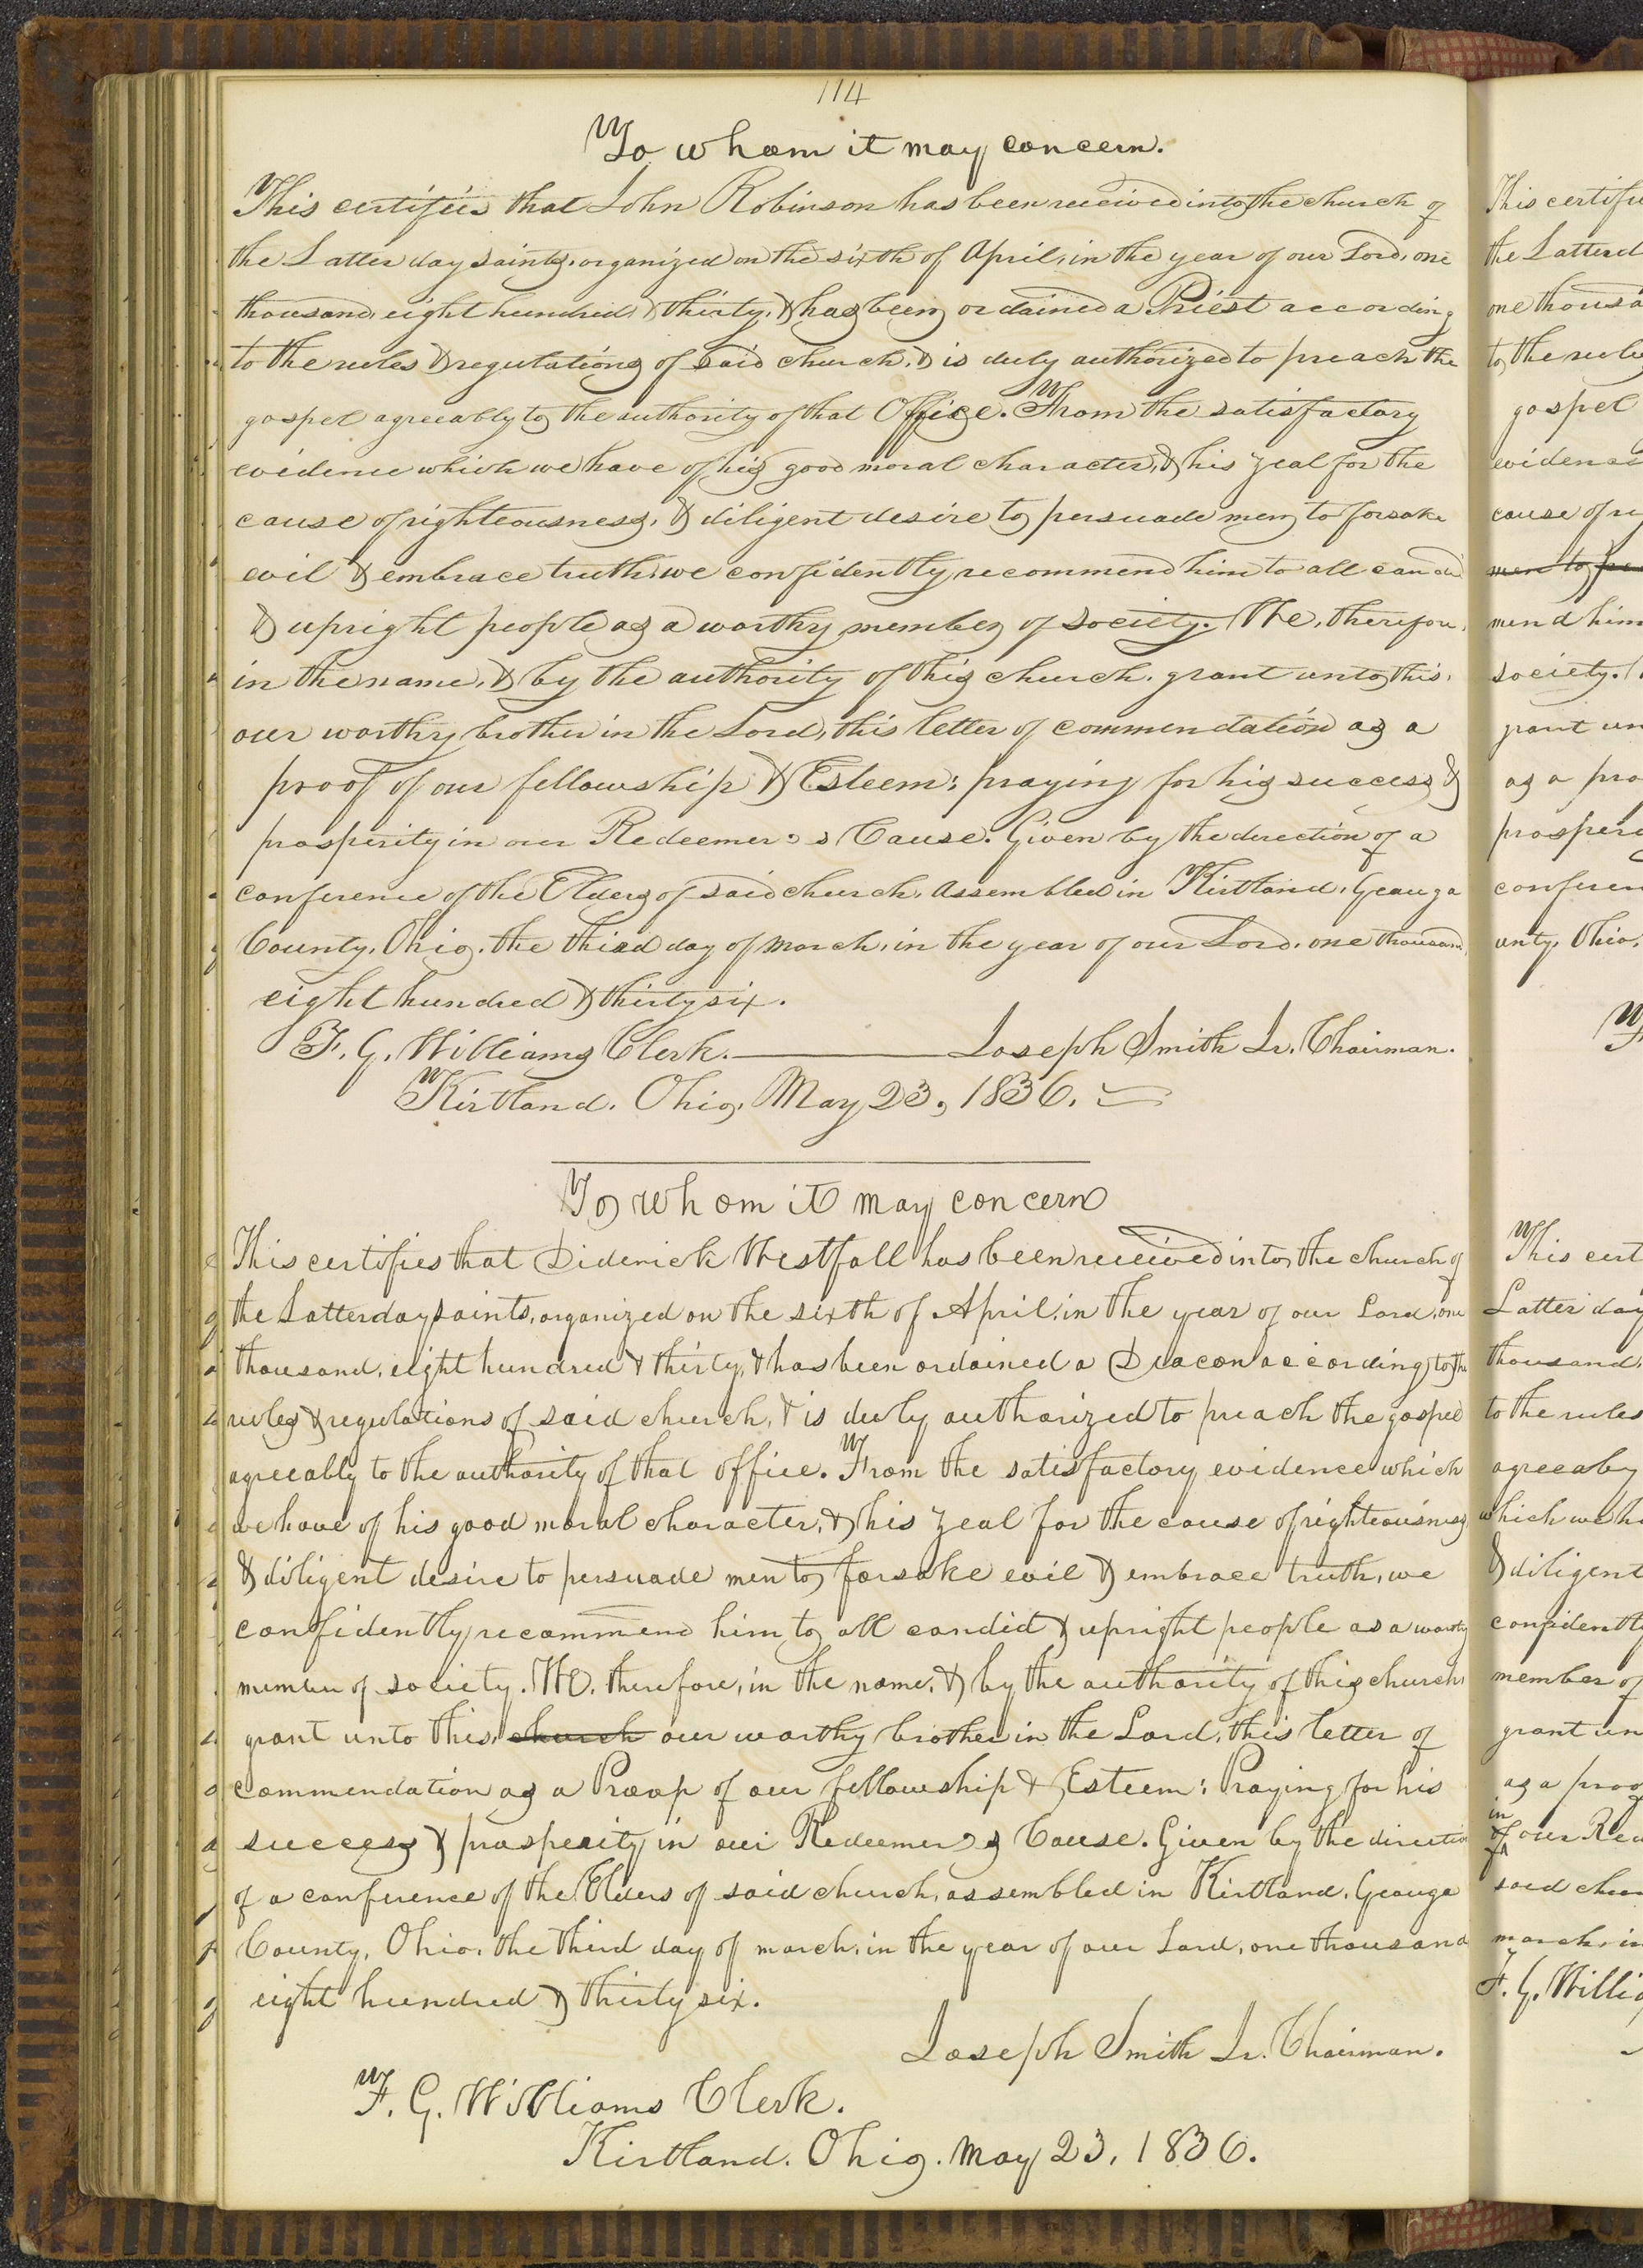 114
To whom it may concern.
This certifies that John Robinson has been received into the church of
the Latter day saints, organized on the sixth of April, in the year of our Lord, one
thousand, eight hundred, & thirty, & has been ordained a Priest according
to the rules & regulations of said church, & is duly authorized to preach the
gospel agreeably to the authority of that Office. From the satisfactory
evidence which we have of his good moral character, & his zeal for the
cause of righteousness, & diligent desire to persuade men to forsake
evil & embrace truth, we confidently recommend him to all candid
& upright people as a worthy member of society. We, therefore,
in the name, & by the authority of this church, grant unto this,
our worthy brother in the Lord, this letter of commendation as a
proof of our fellowship & Esteem: praying for his success &
prosperity in our Redeemer's Cause. Given by the direction of a
conference of the Elders of said church, assembled in Kirtland, Geauga
County, Ohio, the third day of march, in the year of our Lord, one thousand,
eight hundred & thirty six.
F. G. Williams Clerk. Joseph Smith Jr. Chairman.
Kirtland, Ohio, May 23, 1836.
To whom it may concern
This certifies that Diderick Westfall has been received into the church of
the Latterday saints, organized on the sixth of April, in the year of our Lord, one
thousand, eight hundred & thirty, & has been ordained a Deacon according to the
rules & regulations of said church, & is duly authorized to preach the gospel
agreeably to the authority of that office. From the satisfactory evidence which
we have of his good moral character, & his zeal for the cause of righteousness,
& diligent desire to persuade men to forsake evil & embrace truth, we
confidently recommend him to all candid & upright people as a worthy
member of society. We, therefore, in the name, & by the authority of this church,
grant unto this, church our worthy brother in the Lord, this letter of
commendation as a Proop of our fellowship & Esteem: Praying for his
success & prosperity in our Redeemer's Cause. Given by the directio
of a conference of the Elders of said church, assembled in Kirtland, Geauga
County, Ohio, the third day of march, in the year of our Lord, one thousand
eight hundred & thirty six.
Joseph Smith Jr. Chairman.
F. G. Williams Clerk.
Kirtland, Ohio, May 23, 1836.
This certifi
the Latterd
one thousa
to the rule
gospel
evidenc
cause of ri
men to
mend him
society.
grant un
as a pro
prosperi
conferen
unty, Ohio,
This cert
Latter day
thousand,
to the rules
agreeaby
which we ha
& diligent
confidently
member of
grant un
as a proo
in
of our Red
said chur
march, in
F. G. Willia